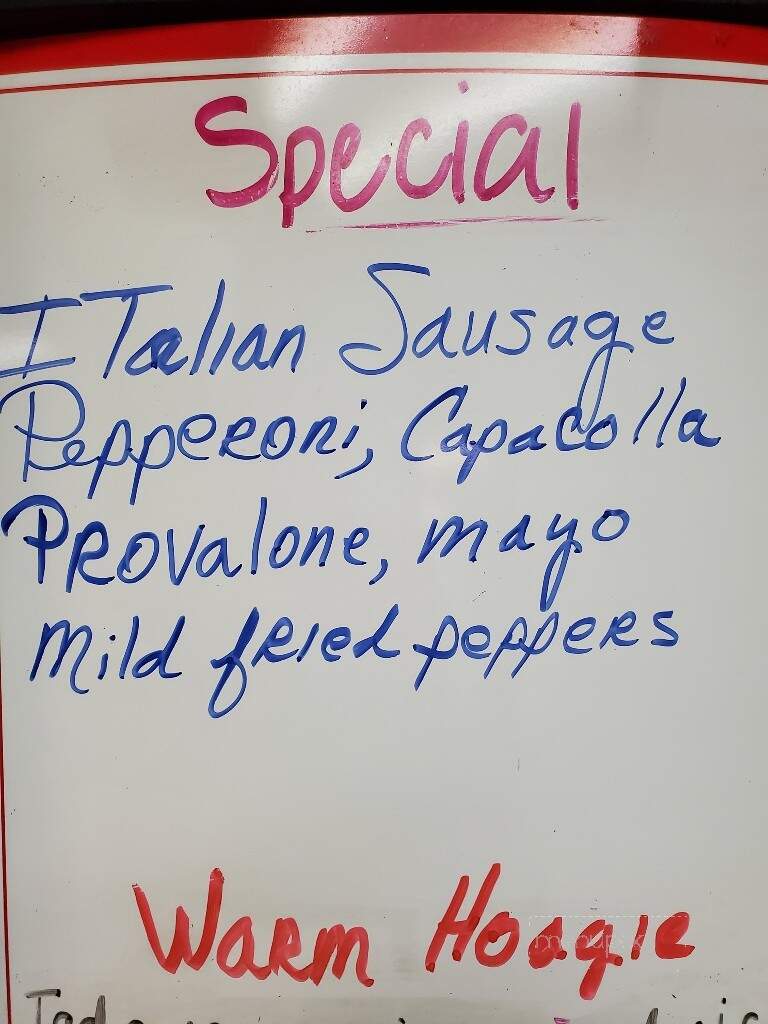 Special
ITalian Sausage
Pepperoni, Capacolla
Provalone, mayo
Mild fried peppers
Warm Hoagie